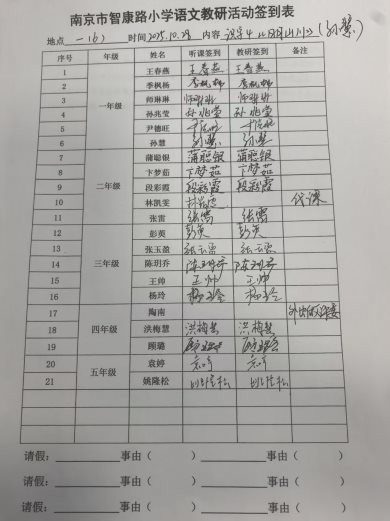 南京市智康路小学语文教研活动签到表
地点 一(6) 时间 2025.10.28 内容 识字4
序号 年级 姓名 听课签到 教研签到 备注
1 一年级 王春燕 王春燕 王春燕
2 季枫杨 季枫杨 季枫杨
3 师琳琳 师琳琳 师琳琳
4 孙兆莹 孙兆莹 孙兆莹
5 尹德旺 尹德旺 尹德旺
6 孙慧 孙慧 孙慧
7 二年级 蒲聪银 蒲聪银 蒲聪银
8 卞梦茹 卞梦茹 卞梦茹
9 段彩霞 段彩霞 段彩霞
10 林凯雯 林凯雯 代课
11 张雷 张雷 张雷
12 三年级 彭英 彭英 彭英
13 张玉盈
14 陈玥乔 陈玥乔 陈玥乔
15 王帅 王帅 王帅
16 杨玲 杨玲 杨玲
17 四年级 陶南
18 洪梅慧 洪梅慧 洪梅慧
19 顾璐 顾璐 顾璐
20 五年级 袁婷 袁婷 袁婷
21 姚隆松 姚隆松 姚隆松
请假: 事由( ) 事由( )
请假: 事由( ) 事由( )
请假: 事由( ) 事由( )